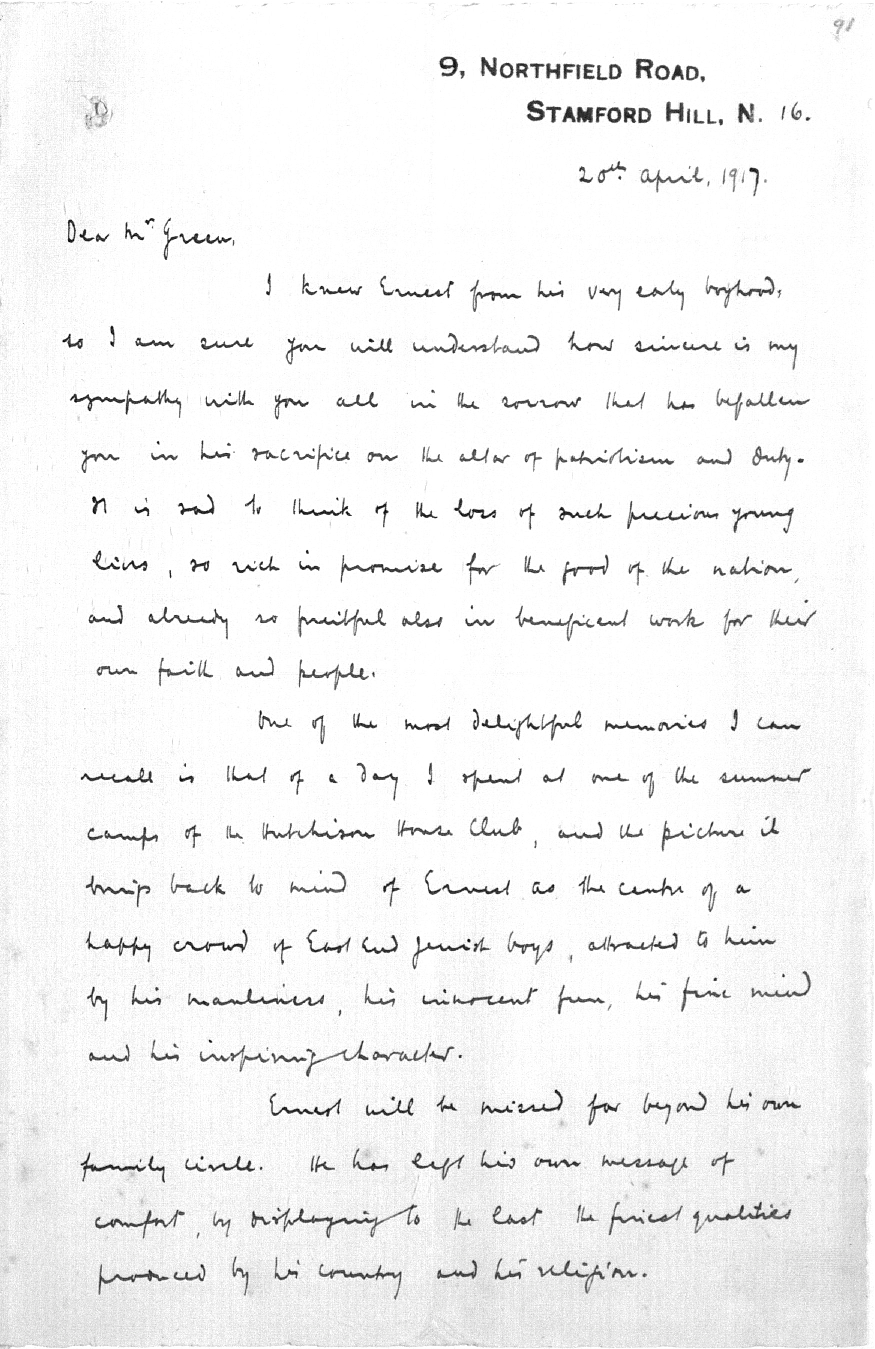 91
9, NORTHFIELD ROAD,
STAMFORD HILL, N. 16.
20th April, 1917.
Dear Mr Green,
I knew Ernest from his very early boyhood,
so I am sure you will understand how sincere is my
sympathy with you all in the sorrow that has befallen
you in his sacrifice on the altar of patriotism and duty.
It is sad to think of the loss of such precious young
lives, so rich in promise for the good of the nation,
and already so fruitful also in beneficent work for their
own faith and people.
One of the most delightful memories I can
recall is that of a day I spent at one of the summer
camps of the Hutchison House Club, and the picture it
brings back to mind of Ernest as the centre of a
happy crowd of East End Jewish boys, attracted to him
by his manliness, his innocent fun, his fine mind
and his inspiring character.
Ernest will be missed far beyond his own
family circle. He has left his own message of
comfort, by displaying to the last the finest qualities
produced by his country and his religion.